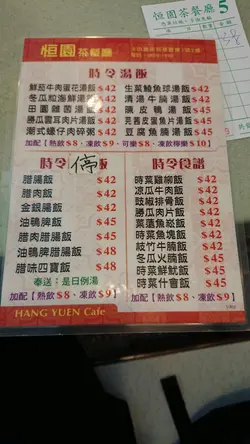 恒園茶餐廳
時令湯飯
鮮茄牛肉蛋花湯飯 $42
冬瓜粒海鮮湯飯 $42
田園雜菌湯飯 $42
勝瓜雲耳肉片湯飯 $45
潮式蠔仔肉碎粥 $42
生菜鯪魚球湯飯 $42
清湯牛腩湯飯 $42
豌豆鴨湯飯 $45
芫茜皮蛋魚湯飯 $45
豆腐魚腩湯飯 $45
加配【熱飲$8、凍飲$9、可樂$8、凍飲檸樂$10】
停
臘腸飯 $42
臘肉飯 $42
金銀腸飯 $42
油鴨脾飯 $45
臘肉臘腸飯 $45
油鴨脾臘腸飯 $48
臘味四寶飯 $48
奉送：是日例湯
加配【熱飲$8、凍飲$9】
時令食譜
時菜雞柳飯 $42
涼瓜牛肉飯 $42
豉椒排骨飯 $42
勝瓜肉片飯 $42
菜薳魚崧飯 $42
時菜魚塊飯 $42
枝竹牛腩飯 $42
冬瓜火腩飯 $45
時菜鮮魷飯 $45
時菜什會飯 $45
加配【熱飲$8、凍飲$9】
HANG YUEN Cafe
恒園茶餐廳
5